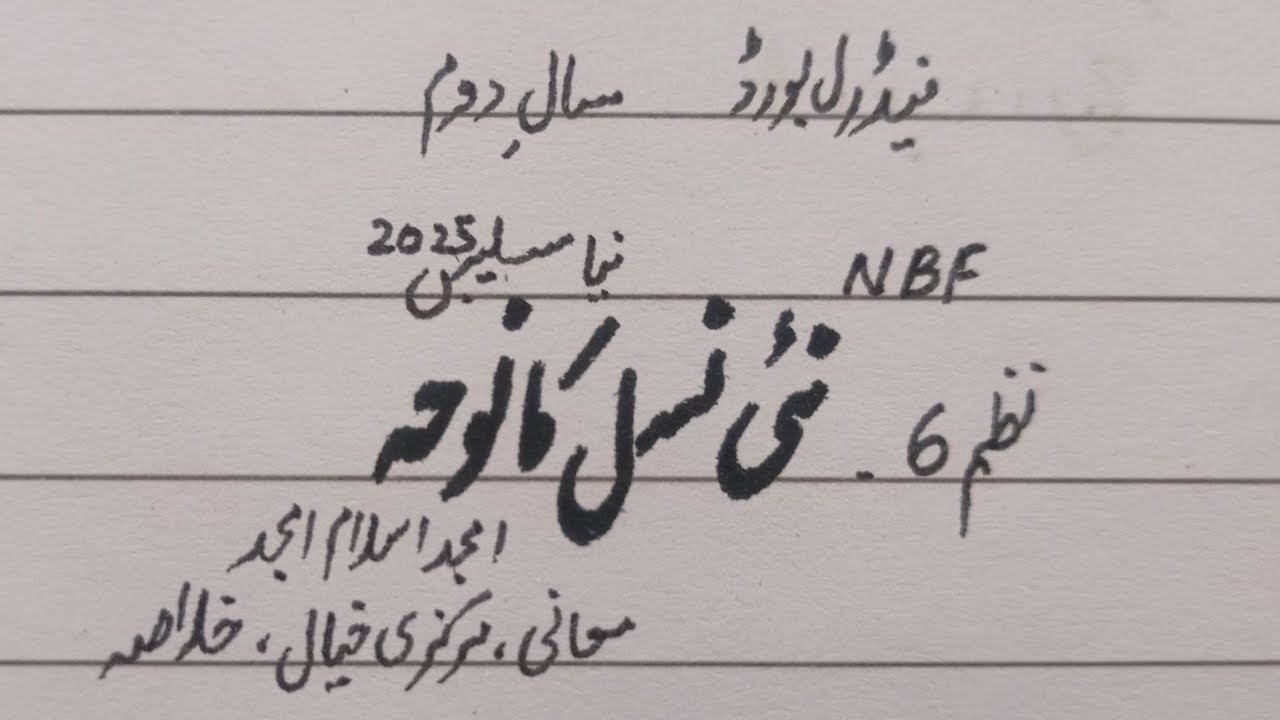 فیڈرل بورڈ سالِ دوم
NBF نیا سلیبس 2025
نظم 6. نئی نسل کا نوحہ
امجد اسلام امجد
معانی، مرکزی خیال، خلاصہ